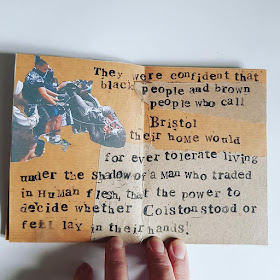 They were confident that
black people and brown
people who call
Bristol
their home would
for ever tolerate living
under the Shadow of a Man who traded
in Human flesh, that the power to
decide whether Colston stood or
fell lay in their hands!